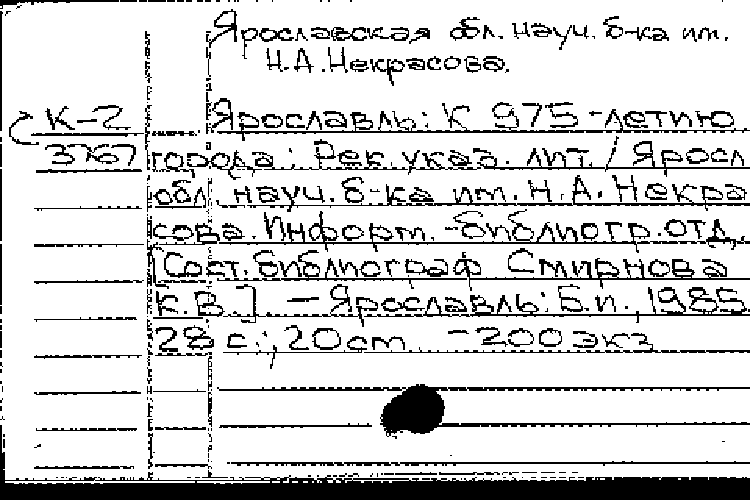 Ярославская обл. науч. б-ка им.
Н.А.Некрасова.
К-2 Ярославль: К 975-летию
3767 города: Рек. указ. лит. / Яросл
обл. науч. б-ка им. Н.А. Некра
сова. Информ.-библиогр. отд.
[Сост. библиограф Смирнова
К.В.]. – Ярославль: Б.и., 1985.
28 с.; 20 см – 200 экз